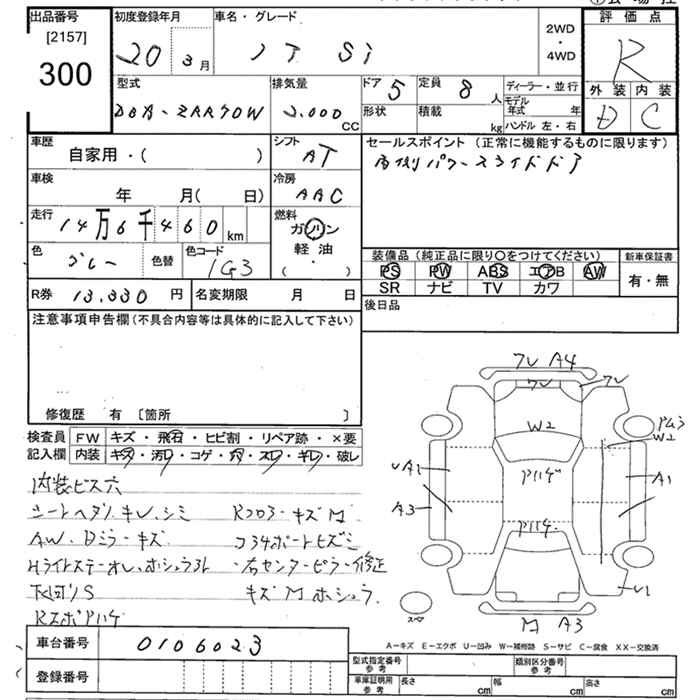 出品番号
[2157]
300
初度登録年月
20 年 3 月
車名・グレード
Si
2WD
・
4WD
評価点
R
外装 内装
D C
型式
DBA-ZRR70W
排気量
2.000
CC
ドア 5
定員 8 人
形状
積載
kg
ディーラー・並行
モデル年式 年
ハンドル 左・右
車歴
自家用・( )
シフト
AT
車検
年 月( 日)
冷房
AAC
走行
14万6千460 km
燃料
ガソリン
軽油
( ・ )
色
グレー
色替
色コード
1G3
セールスポイント (正常に機能するものに限ります)
両側パワースライドドア
装備品(純正品に限り○をつけてください)
PS PW ABS エアB AW
SR ナビ TV カワ
新車保証書
有・無
R券
13.330 円
名変期限 月 日
後日品
注意事項申告欄(不具合内容等は具体的に記入して下さい)
修復歴 有 〔箇所 〕
検査員
記入欄
FW キズ・飛石・ヒビ割・リペア跡・×要
内装 キズ・汚レ・コゲ・穴・スレ・キレ・破レ
内装ビス穴
シートヘタリ.キレ.シミ
AW.Dミラーキズ
Hライトステーオレホシュウスレ
下回りS
RスポAハゲ
キズM
コアサポートヒズミ
右センターピラー修正
キズMホシュウ
フレ A4
W2
Aハゲ
Aハゲ
W2
A1
A3
A1
U1
A3
スペア
A-キズ E-エクボ U-凹み W-補修跡 S-サビ C-腐食 XX-交換済
車台番号
0106023
登録番号
型式指定番号
参考
類別区分番号
参考
車庫証明用
参考
長さ cm
幅 cm
高さ cm